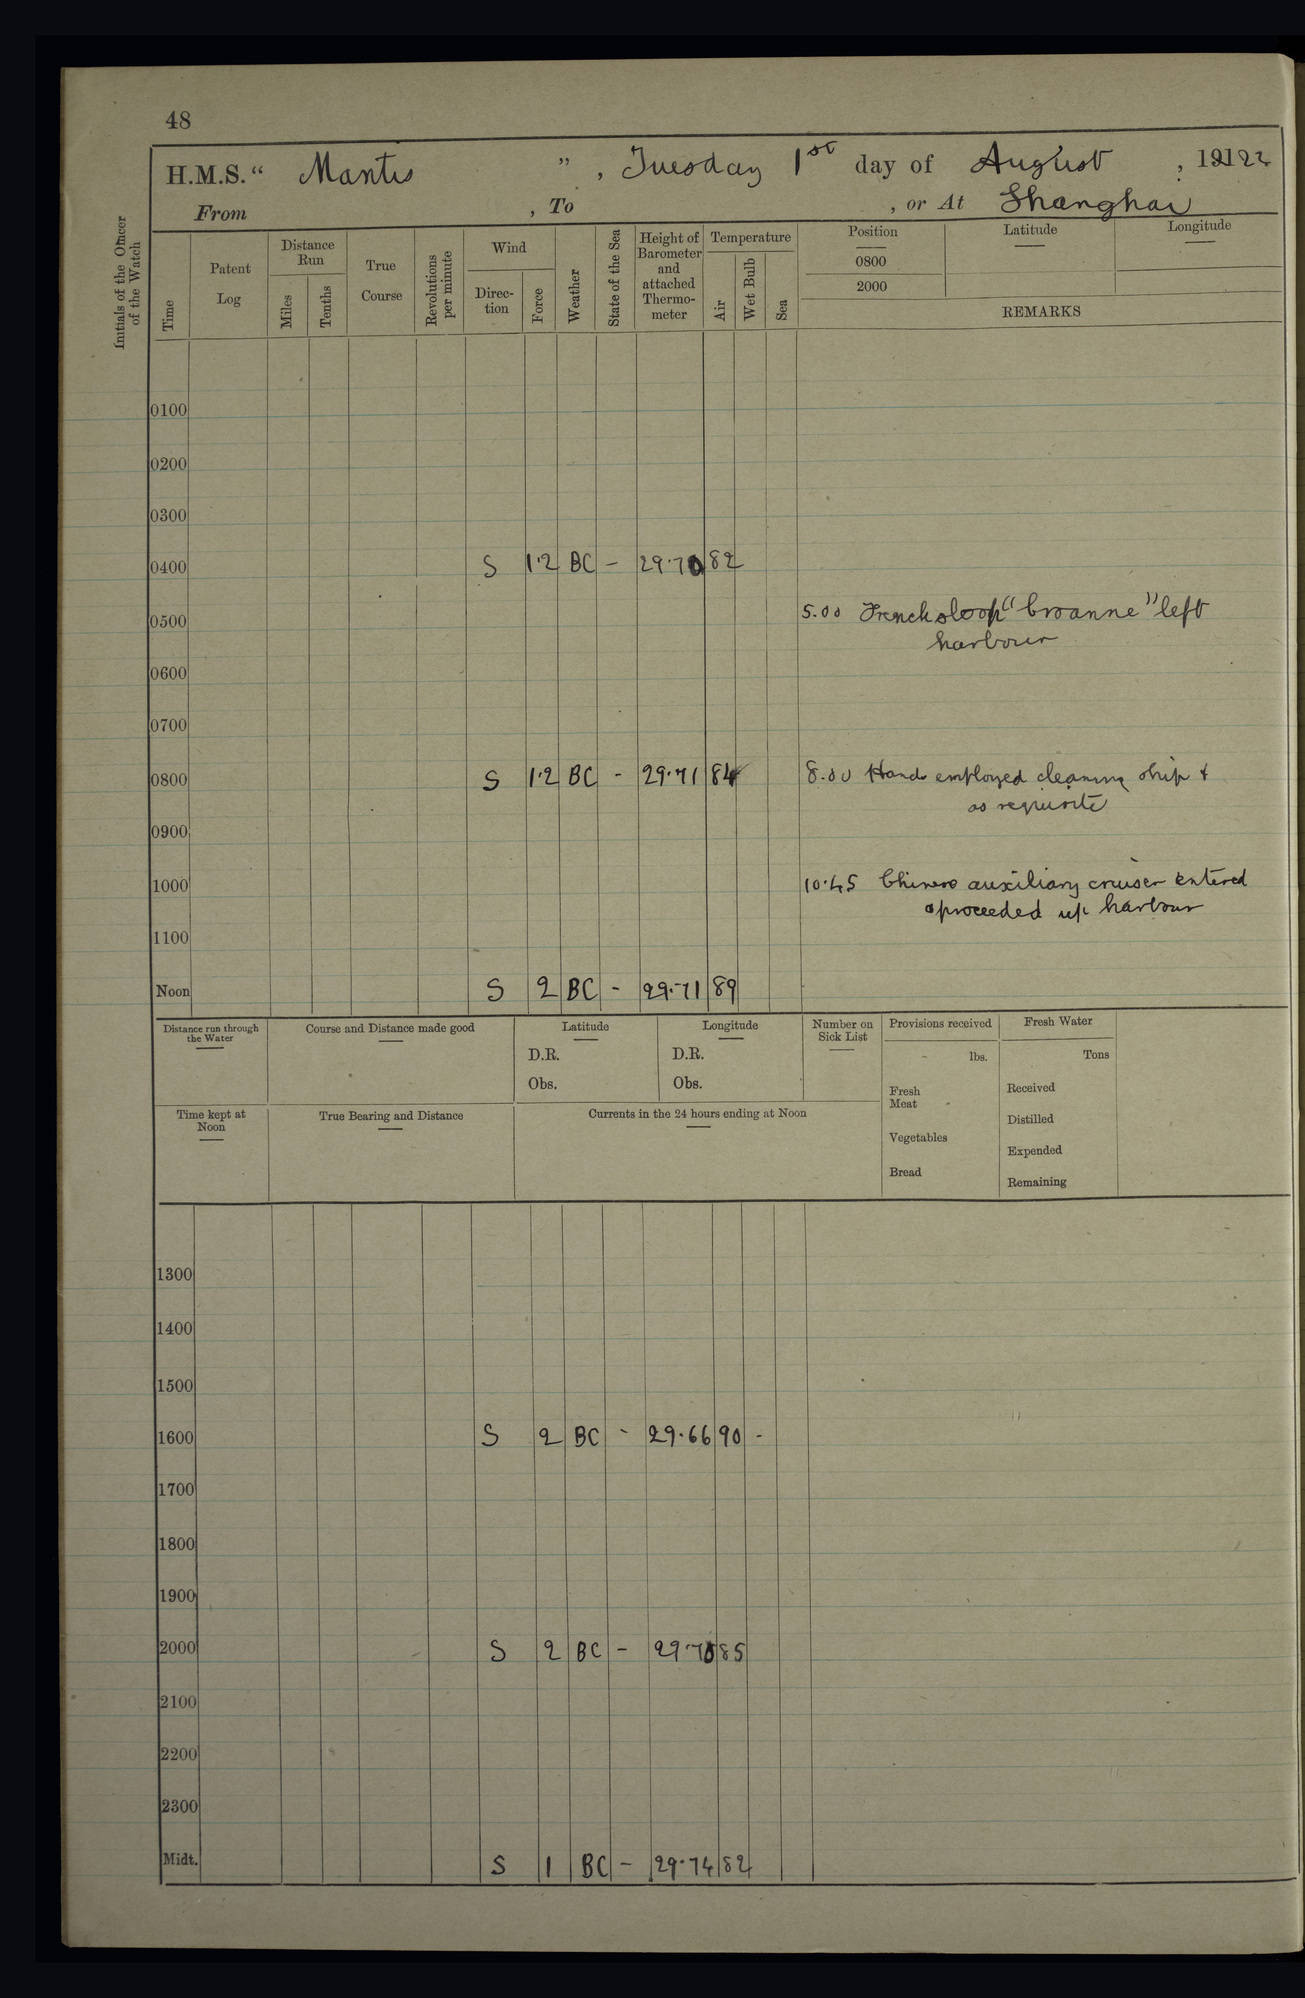 48
H.M.S. “ Mantis ” , Tuesday 1st day of August , 19122
From , To , or At Shanghai
Initials of the Officer of the Watch
Time
Patent Log
Distance Run
Miles
Tenths
True Course
Revolutions per minute
Wind
Direc-tion
Force
Weather
State of the Sea
Height of Barometer and attached Thermo-meter
Temperature
Air
Wet Bulb
Sea
Position
0800
2000
Latitude
Longitude
REMARKS
0100
0200
0300
0400 S 1·2 BC – 29·70 82
0500 5.00 French sloop “Croanne” left
harbour
0600
0700
0800 S 1·2 BC - 29·71 84 8.00 Hands employed cleaning ship &
as requisite
0900
1000 10·45 Chinese auxiliary cruiser entered
& proceeded up harbour
1100
Noon S 2 BC - 29·71 89
Distance run through the Water
Course and Distance made good
Latitude
D.R.
Obs.
Longitude
D.R.
Obs.
Number on Sick List
Provisions received
lbs.
Fresh Meat
Vegetables
Bread
Fresh Water
Tons
Received
Distilled
Expended
Remaining
Time kept at Noon
True Bearing and Distance
Currents in the 24 hours ending at Noon
1300
1400
1500
1600 S 2 BC - 29·66 90 -
1700
1800
1900
2000 S 2 BC – 29·70 85
2100
2200
2300
Midt. S 1 BC – 29·74 82